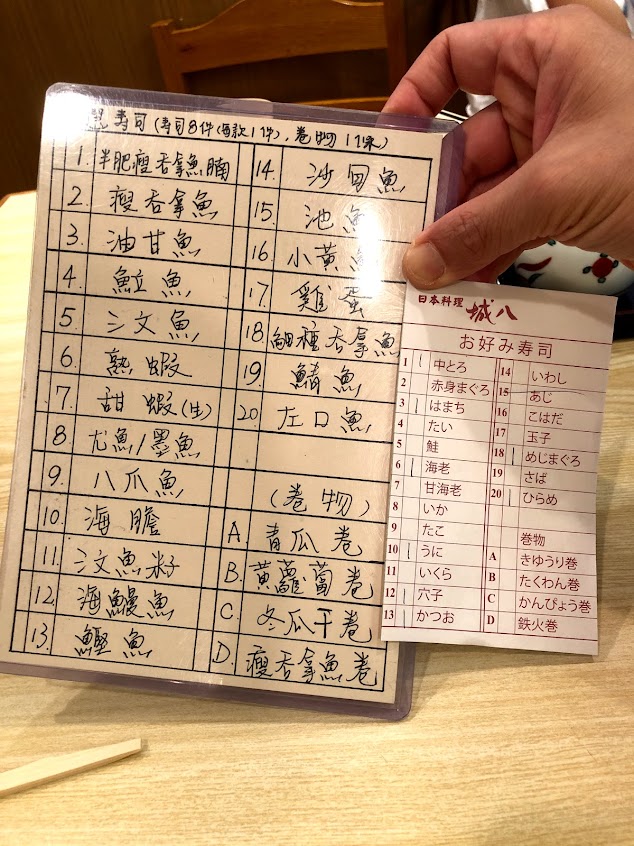 壽司(壽司8件(每款1件),卷物1條)
1. 半肥瘦吞拿魚腩
2. 瘦吞拿魚
3. 油甘魚
4. 魬魚
5. 三文魚
6. 熟蝦
7. 甜蝦(生)
8. 尤魚/墨魚
9. 八爪魚
10. 海膽
11. 三文魚籽
12. 海鰻魚
13. 鰹魚
14. 沙甸魚
15. 池魚
16. 小黃魚
17. 雞蛋
18. 細種吞拿魚
19. 鯖魚
20. 左口魚
(卷物)
A 青瓜卷
B. 黃蘿蔔卷
C. 冬瓜干卷
D. 瘦吞拿魚卷
日本料理 城八
お好み寿司
1 中とろ
2 赤身まぐろ
3 はまち
4 たい
5 鮭
6 海老
7 甘海老
8 いか
9 たこ
10 うに
11 いくら
12 穴子
13 かつお
14 いわし
15 あじ
16 こはだ
17 玉子
18 めじまぐろ
19 さば
20 ひらめ
巻物
A きゆうり巻
B たくわん巻
C かんぴょう巻
D 鉄火巻